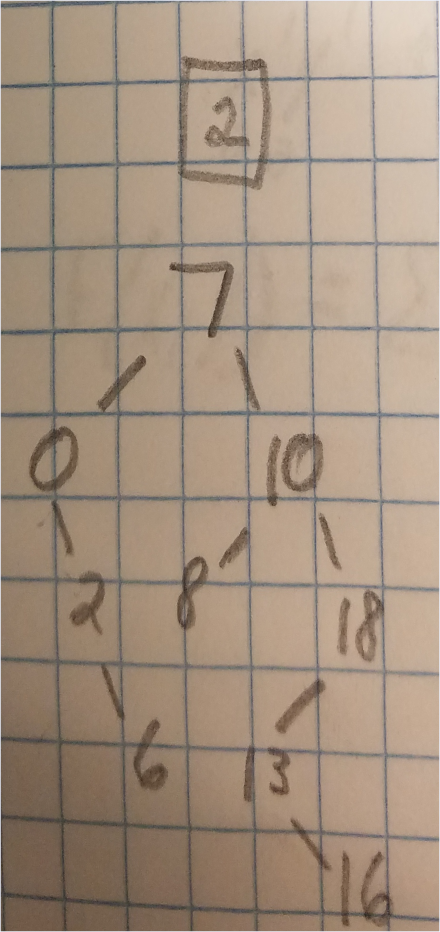 2
7
0 10
2 8 18
6 13
16